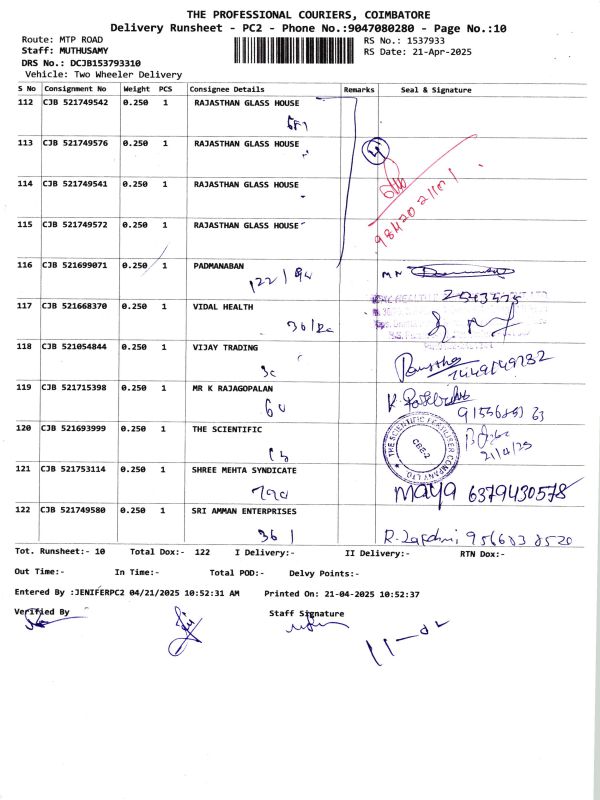 THE PROFESSIONAL COURIERS, COIMBATORE
Delivery Runsheet - PC2 - Phone No.:9047080280 - Page No.:10
Route: MTP ROAD
RS No.: 1537933
Staff: MUTHUSAMY
RS Date: 21-Apr-2025
DRS No.: DCJB153793310
Vehicle: Two Wheeler Delivery
S No Consignment No Weight PCS Consignee Details Remarks Seal & Signature
112 CJB 521749542 0.250 1 RAJASTHAN GLASS HOUSE
113 CJB 521749576 0.250 1 RAJASTHAN GLASS HOUSE
114 CJB 521749541 0.250 1 RAJASTHAN GLASS HOUSE
9842021101
115 CJB 521749572 0.250 1 RAJASTHAN GLASS HOUSE
116 CJB 521699071 0.250 1 PADMANABAN
117 CJB 521668370 0.250 1 VIDAL HEALTH
118 CJB 521054844 0.250 1 VIJAY TRADING
119 CJB 521715398 0.250 1 MR K RAJAGOPALAN
60
120 CJB 521693999 0.250 1 THE SCIENTIFIC
THE SCIENTIFIC FERTILISER COMPANY LTD
CBE-2
21/4/25
121 CJB 521753114 0.250 1 SHREE MEHTA SYNDICATE
maya 6379430578
122 CJB 521749580 0.250 1 SRI AMMAN ENTERPRISES
36 1
Tot. Runsheet:- 10 Total Dox:- 122 I Delivery:- II Delivery:- RTN Dox:-
Out Time:- In Time:- Total POD:- Delvy Points:-
Entered By :JENIFERPC2 04/21/2025 10:52:31 AM Printed On: 21-04-2025 10:52:37
Verified By Staff Signature